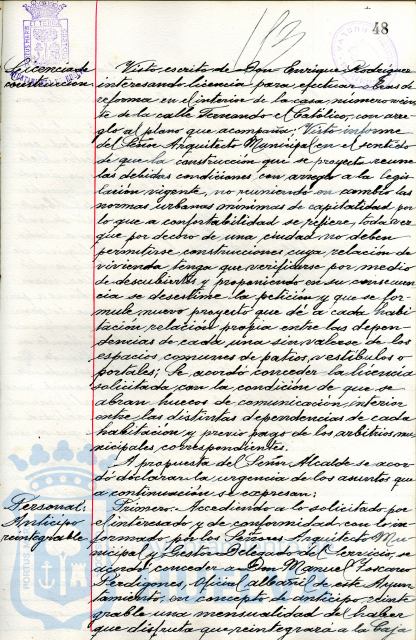 48
Licencia de
construcción.
Visto escrito de Don Enrique Rodríguez
interesando licencia para efectuar obras de
reforma en el interior de la casa número vein-
te de la calle Fernando el Católico, con arre-
glo al plano que acompaña; Visto informe
del Señor Arquitecto Municipal en el sentido
de que la construcción que se proyecta reune
las debidas condiciones con arreglo a la legis-
lación vigente, no reuniendo en cambio las
normas urbanas mínimas de capitalidad por
lo que a confortabilidad se refiere, toda vez
que por decoro de una ciudad no deben
permitirse construcciones cuya relación de
vivienda tenga que verificarse por medio
de descubiertos y proponiendo en su consecuen-
cia se desestime la petición y que se for-
mule nuevo proyecto que dé a cada habi-
tación relación propia entre las depen-
dencias de cada una sin valerse de los
espacios comunes de patios, vestíbulos o
portales; Se acordó conceder la licencia
solicitada con la condición de que se
abran huecos de comunicación interior
entre las distintas dependencias de cada
habitación y previo pago de los arbitrios mu-
nicipales correspondientes.
A propuesta del Señor Alcalde se acor-
dó declarar la urgencia de los asuntos que
a continuación se expresan:
Personal:
Anticipo
reintegrable
Primero.- Accediendo a lo solicitado por
el interesado y de conformidad con lo in-
formado por los Señores Arquitecto Mu-
nicipal y Gestor Delegado del Servicio, se
acordó conceder a Don Manuel
Perdigones, Oficial albañil de este Ayun-
tamiento, en concepto de anticipo reinte-
grable una mensualidad del haber
que disfruta que reintegrará a la Caja